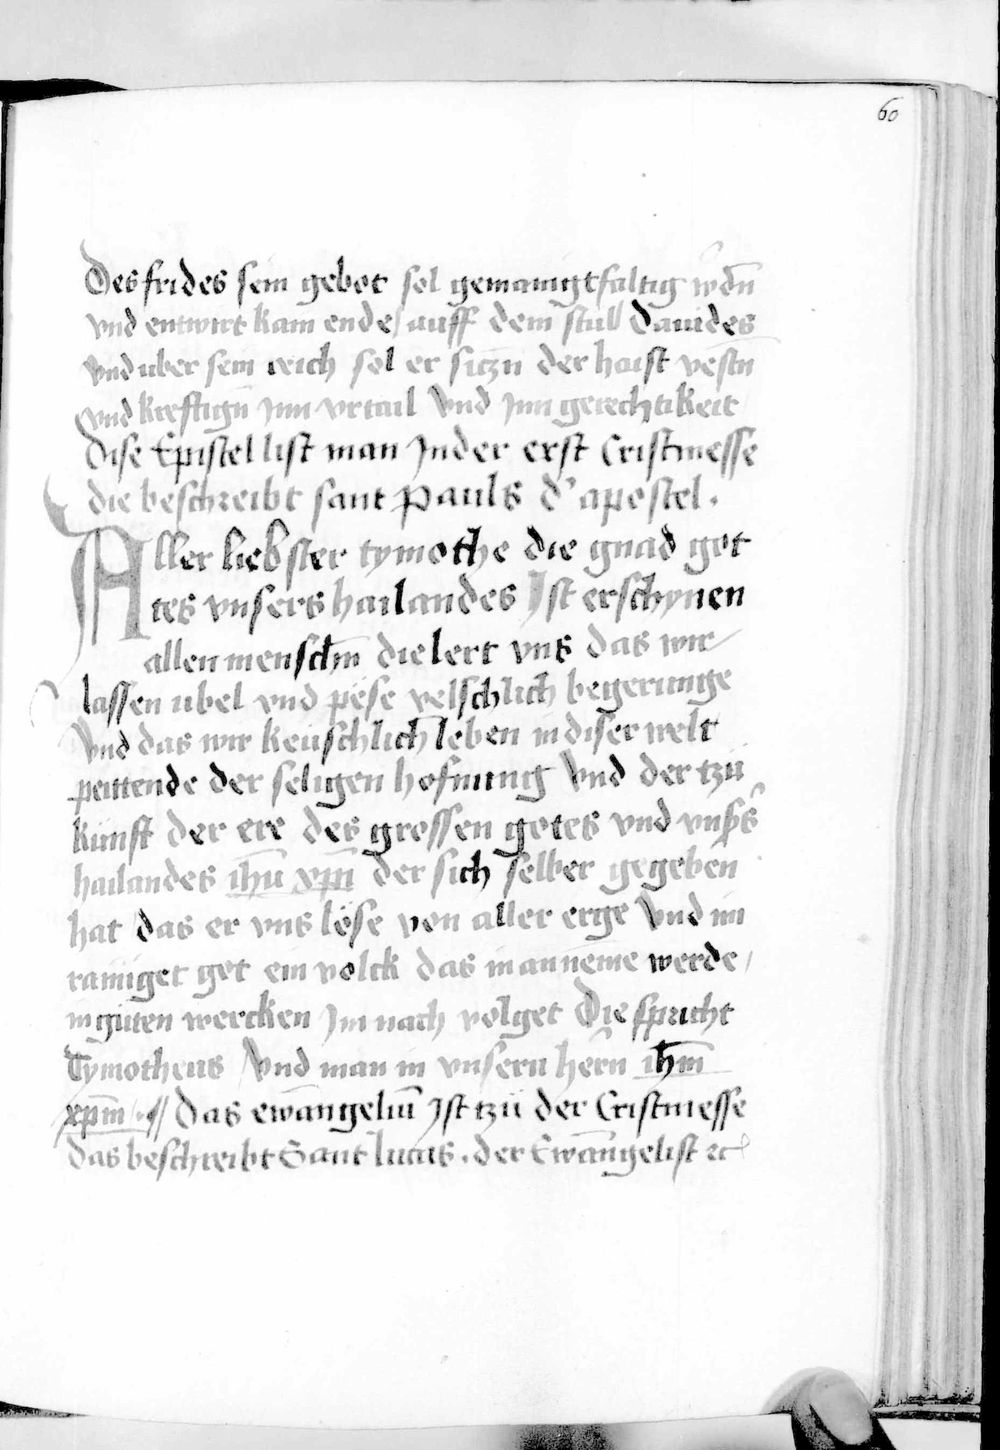 60
Des frides sein gebot sol gemanigtfaltig wdn̄
vnd entwirt kain ende / auff dem stull Dauides
vnd uber sein reich sol er siczn der haist vestn
vnd kreftign Jnn vrtail Vnd Jnn gerechtikeit
Dise Epistel list man Jn der erst Cristmesse
die beschreibt sant Pauls d' apostel .
Aller liebster tymothe die gnad got
tes vnsers hailandes Ist erschynen
allen mensch̄n die lert vns das wir
lassen ubel vnd pöse velschlich begerunge
Vnd das wir keuschlich leben in diser welt
peittende der seligen hofnung Vnd der tzů
kunft der ere des grossen gotes vnd vnsͤs
hailandes ih̄u xp̄i der sich selber gegeben
hat das er vns löse von aller erge Vnd im
rainiget got ein volck das im anneme werde /
in gůten wercken Jm nach volget Die spricht
Tymotheus Vnd man in vnsern hern ih̄m
xp̄m . Das ewāngeliū Jst tzů der Cristmesse
das beschreibt Sant lucas . der Ewāngelist ꝛc